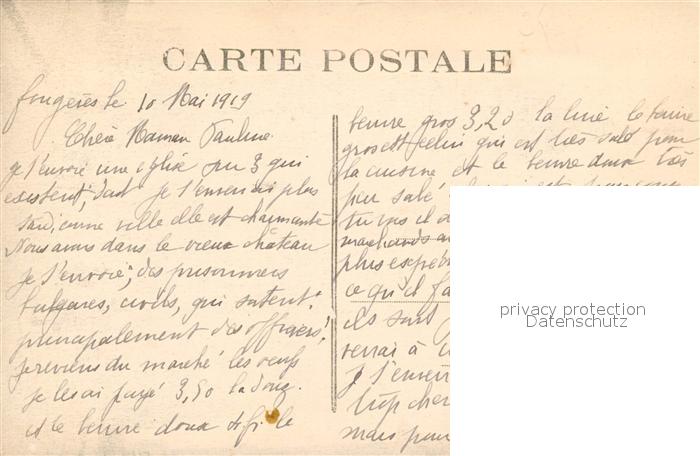 CARTE POSTALE
fougères le 10 Mai 1919
Chère Maman Pauline
je t'envoie une église sur 3 qui
existent, dont je t'enverrai plus
tard, comme ville elle est charmante
Nous avons dans le vieux château
je t'envoie, des prisonniers
bulgares, civils, qui
principalement des officiers!
je reviens du marché les oeufs
je les ai payé 3,50 la douz.
et le beurre doux 4 f. le
beurre gros 3,20 la livre le beurre
gros est celui qui est très salé pour
la cuisine et le beurre doux très
peu salé
tu vois il
marchands
plus
ce qu'il fa
ils sont
verrai à
je t'enverr
trop cher
mais pour
privacy protection
Datenschutz